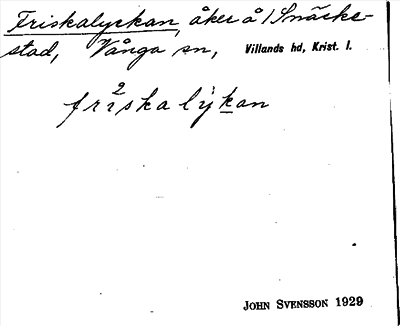 Friskalyckan, åker å 1 Snäcke-
stad, Vånga sn, Villands hd, Krist. l.
fr2iskalýkan
JOHN SVENSSON 1929